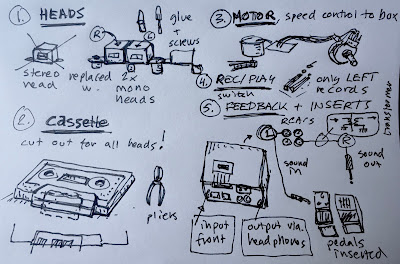 1. HEADS
R
L
glue
+
screws
stereo
head
replaced
w.
2x
mono
heads
2. Cassette
cut out for all heads!
pliers
3. MOTOR, speed control to box
4. REC/PLAY
switch
only LEFT
records
5. FEEDBACK + INSERTS
RCA's
L
R
transformer
sound
in
sound
out
input
front
output via
headphones
pedals
inserted